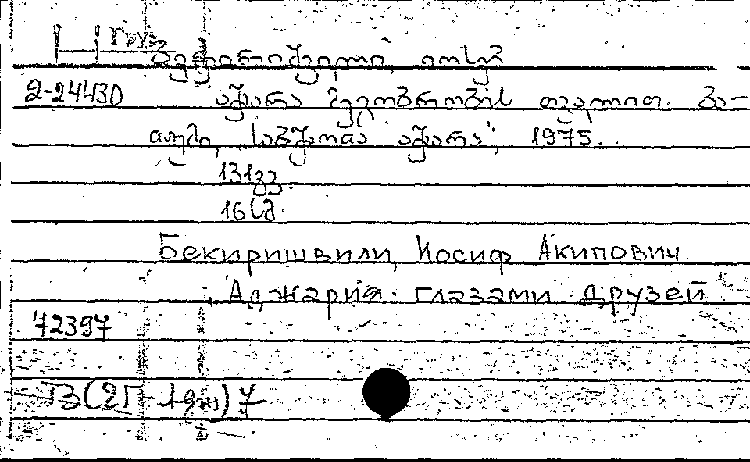 ბექირიშვილი, იოსებ
2-24430 აჭარა მეგობრობის თვალით. ბა-
თუმი, "საბჭოთა აჭარა", 1975.
131გვ.
16სმ.
Бекиришвили, Иосиф Акипович
Аджария глазами друзей
72397